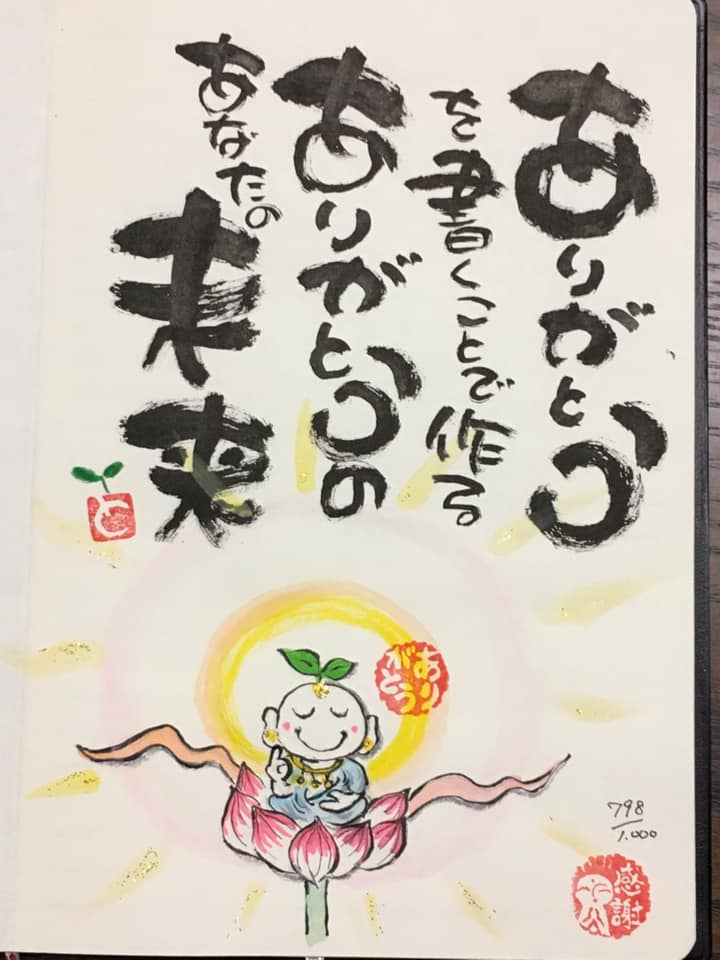 ありがとう
を書くことで作る
ありがとうの
あなたの
未来
と
ありがとう
798/1.000
感謝